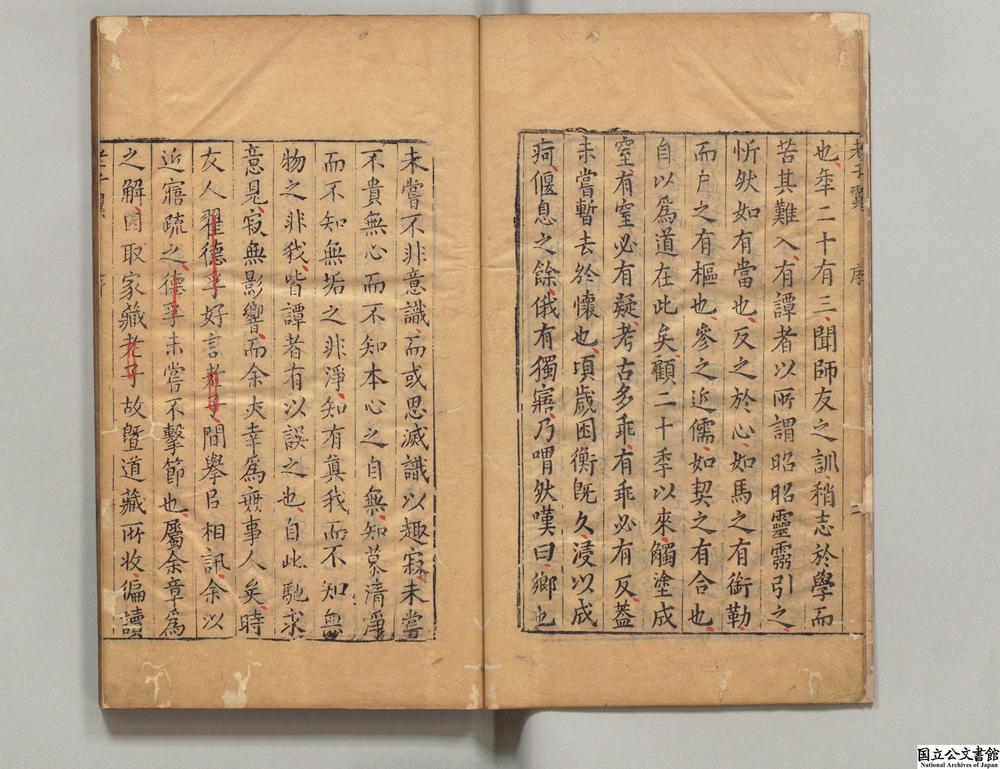 老子翼 序 二
也年二十有三聞師友之訓稍志於學而
苦其難入有譚者以所謂昭昭靈靈引之
忻然如有當也反之於心如馬之有銜勒
而戶之有樞也參之近儒如契之有合也
自以爲道在此矣顧二十季以來觸塗成
窒有窒必有疑考古多乖有乖必有反蓋
未嘗暫去於懷也頃歲困衡旣久浸以成
疴偃息之餘俄有獨寤乃喟然嘆曰鄉也
未嘗不非意識而或思滅識以趣寂未嘗
不貴無心而不知本心之自無知慕清淨
而不知無垢之非淨知有眞我而不知無
物之非我皆譚者有以誤之也自此馳求
意見寂無影響而余亦幸爲無事人矣時
友人翟德孚好言老子間舉㠯相訊余以
近寤疏之德孚未嘗不擊節也屬余章爲
之解因取家藏老子故曁道藏所收徧讀
老子翼 序
国立公文書館
National Archives of Japan